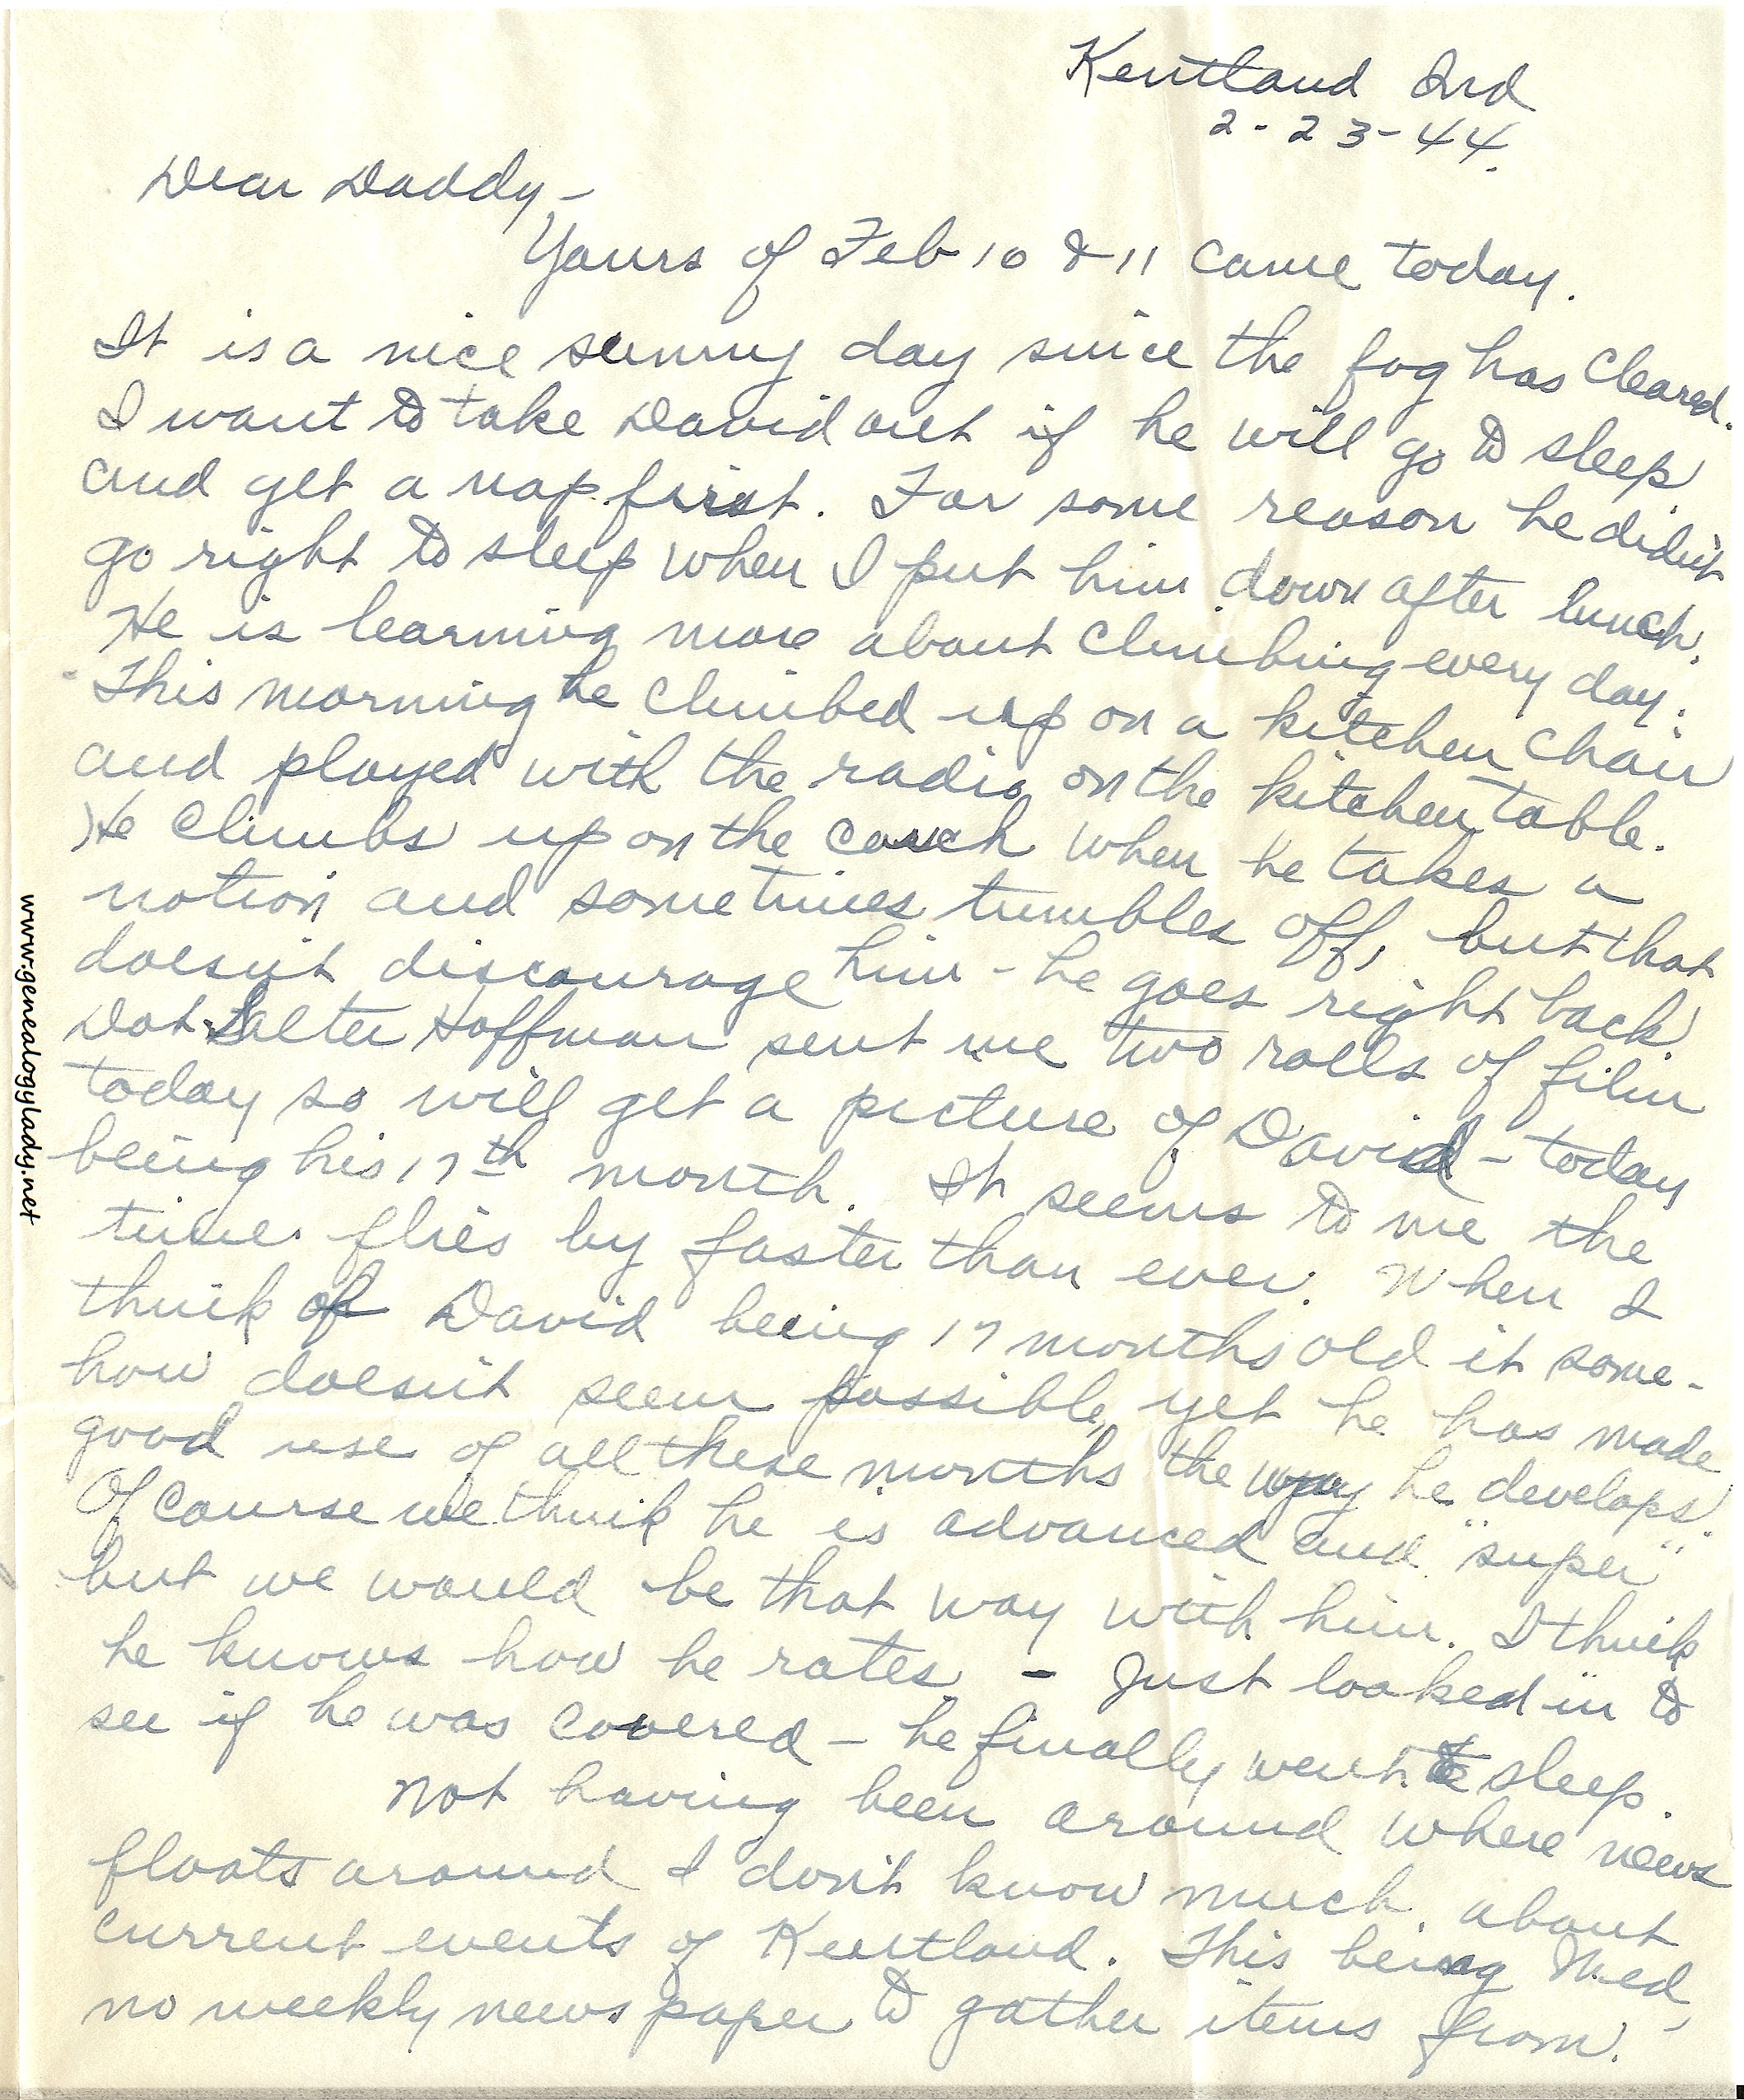 Kentland Ind
2-23-44.
Dear Daddy-
Yours of Feb 10 & 11 came today.
It is a nice sunny day since the fog has cleared.
I want to take David out if he will go to sleep
and get a nap first. For some reason he didn't
go right to sleep when I put him down after lunch.
He is learning more about climbing every day.
This morning he climbed up on a kitchen chair
and played with the radio on the kitchen table.
He climbs up on the couch when he takes a
notion and sometimes tumbles off, but that
doesn't discourage him - he goes right back.
Dot Salter Hoffman sent me two rolls of film
today so will get a picture of David - today
being his 17th month. It seems to me the
time flies by faster than ever. When I
think of David being 17 months old it some-
how doesn't seem possible, yet he has made
good use of all these months the way he develops.
Of course we think he is advanced and "super"
but we would be that way with him. I think
he knows how he rates. - Just looked in to
see if he was covered - he finally went to sleep.
Not having been around where news
floats around I don't know much about
current events of Kentland. This being Wed,
no weekly news paper to gather items from.
www.genealogylady.net